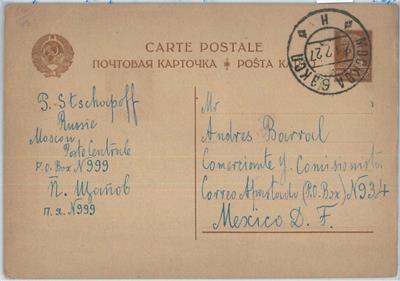 CARTE POSTALE
ПОЧТОВАЯ КАРТОЧКА ✶ POŜTA KA
МОСКВА 6 ЭКСП
7.27
Н
P. Stschapoff
Russie
Moscou
Posto Centrale
P.O. Box N 999
П. Щапов
п. я. N999
Mr
Andres Barral
Comerciante y Comisionista
Correo Apartado (P.O. Box) N 934
Mexico D. F.